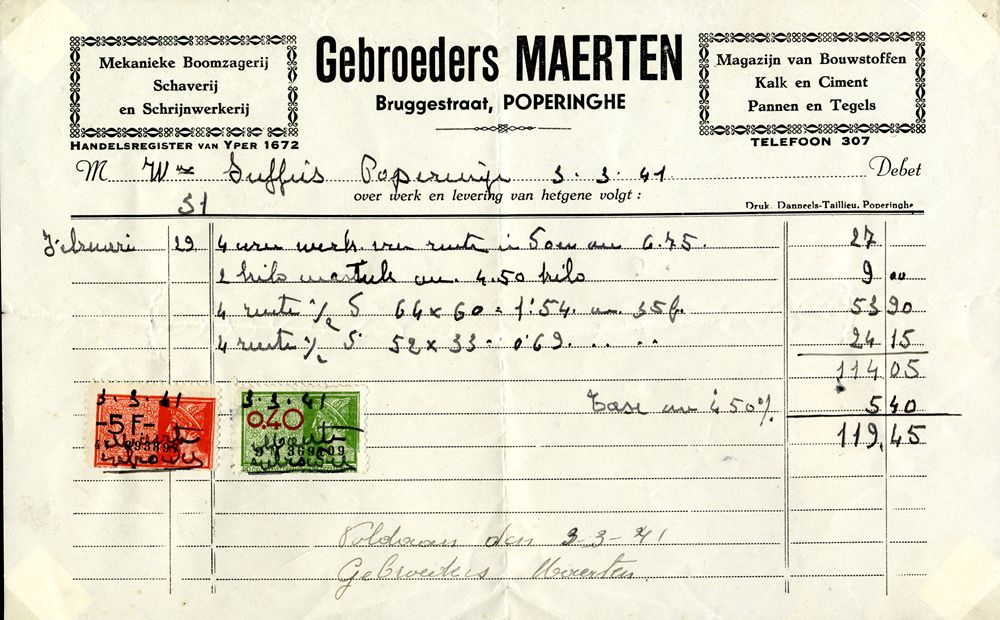 Mekanieke Boomzagerij
Schaverij
en Schrijnwerkerij
HANDELSREGISTER VAN YPER 1672
Gebroeders MAERTEN
Bruggestraat, POPERINGHE
Magazijn van Bouwstoffen
Kalk en Ciment
Pannen en Tegels
TELEFOON 307
M Wwe Suffeis Poperinge 3.3.41 Debet
over werk en levering van hetgene volgt :
31
Druk. Danneels-Taillieu, Poperinghe
Februari 29 4 uren werk van ruite in doen au 6.75. 27
2 kilo mastiek au. 4.50 kilo 9 00
4 ruite 1/2 D 64 x 60 = 1.54. au. 35 f. 53 90
4 ruite 1/2 D 52 x 33 = 0.69. .. .. 24 15
114 05
Taxe au 4.50 % 5 40
119,45
3.3.41
-5 F-
3.3.41
0.40
Voldaan den 3-3-41
Gebroeders Maerten